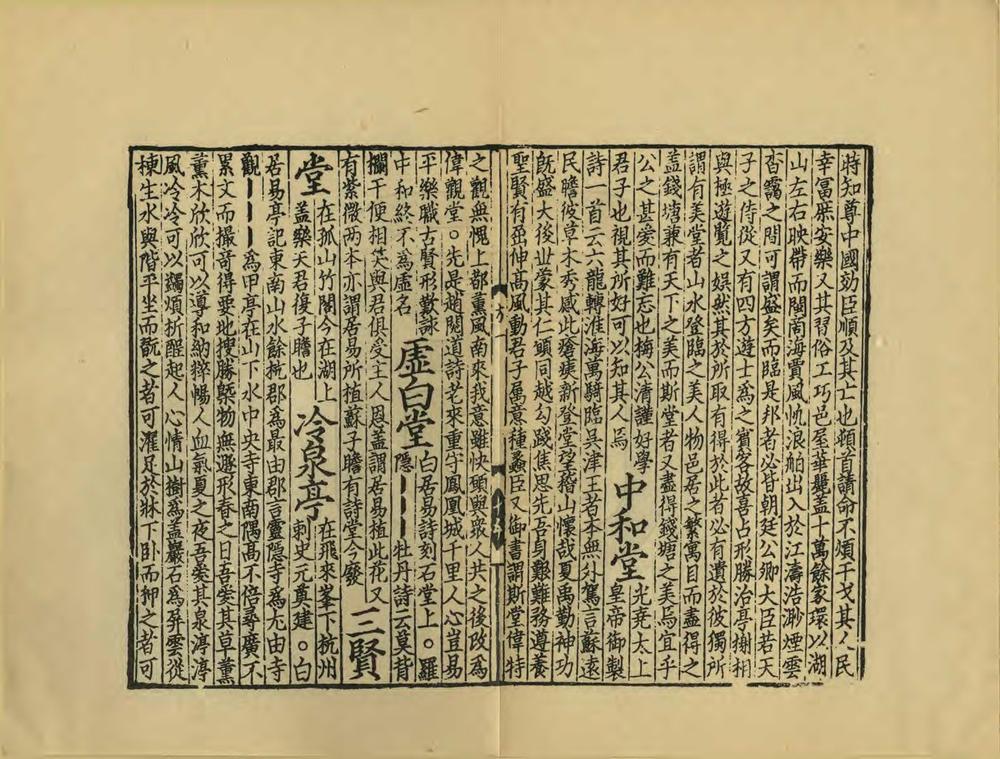 時知尊中國効臣順及其亡也頓首請命不煩干戈其人民
幸冨庶安樂又其習俗工巧邑屋華麗蓋十萬餘家環以湖
山左右映帶而閩商海賈風帆浪舶出入於江濤浩渺煙雲
杳靄之間可謂盛矣而臨是邦者必皆朝廷公卿大臣若天
子之侍從又有四方遊士爲之賓客故喜占形勝治亭榭相
與極遊覽之娱然其於所取有得於此者必有遺於彼獨所
謂有美堂者山水登臨之美人物邑居之繁寓目而盡得之
蓋錢塘兼有天下之美而斯堂者又盡得錢塘之美焉宜乎
公之甚愛而難忘也梅公清謹好學
君子也視其所好可以知其人焉 中和堂 光堯太上皇帝御製
詩一首云六龍轉淮海萬騎臨吳津王者本無外駕言蘇遠
民瞻彼草木秀感此瘡痍新登堂望稽山懷哉夏禹勤神功
旣盛大後世蒙其仁願同越勾踐焦思先吾身艱難務遵養
聖賢有屈伸高風動君子屬意種蠡臣又御書謂斯堂偉特
之觀無愧上都薰風南來我意雖快願與衆人共之後改爲
偉觀堂。先是趙閱道詩老來重守鳳凰城千里人心豈易
平樂職古賢形歎詠
中和終不爲虛名 虛白堂 白居易詩刻石堂上。羅隱———牡丹詩云莫背
欄干便相笑與君俱受主人恩蓋謂居易植此花又
有紫微两本亦謂居易所植蘇子瞻有詩堂今廢 三賢
堂 在孤山竹閣今在湖上
蓋樂天君復子瞻也 冷泉亭 在飛來峯下杭州刺史元藇建。白
居易亭記東南山水餘杭郡爲最由郡言靈隱寺爲尤由寺
觀———爲甲亭在山下水中央寺東南隅高不倍尋廣不
累文而撮竒得要地搜勝槩物無遯形春之日吾愛其草薰
薰木欣欣可以導和納粹暢人血氣夏之夜吾愛其泉渟渟
風冷冷可以蠲煩析酲起人心情山樹爲蓋巖石爲屏雲從
棟生水與階平坐而翫之者可濯足於牀下卧而狎之者可